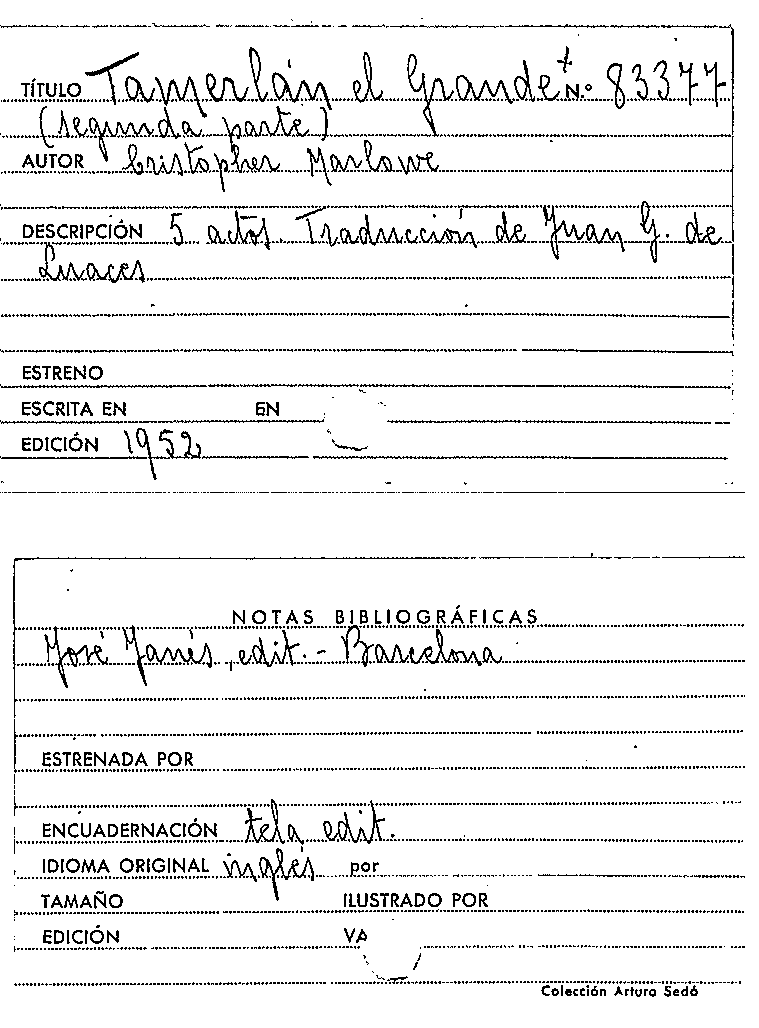 TÍTULO Tamerlán el Grande + N.º 83377
(segunda parte)
AUTOR Cristopher Marlowe
DESCRIPCIÓN 5 actos. Traducción de Juan G. de
Luaces
ESTRENO
ESCRITA EN EN
EDICIÓN 1952
NOTAS BIBLIOGRÁFICAS
José Janés, edit. - Barcelona
ESTRENADA POR
ENCUADERNACIÓN tela edit.
IDIOMA ORIGINAL inglés por
TAMAÑO ILUSTRADO POR
EDICIÓN VA
Colección Arturo Sedó